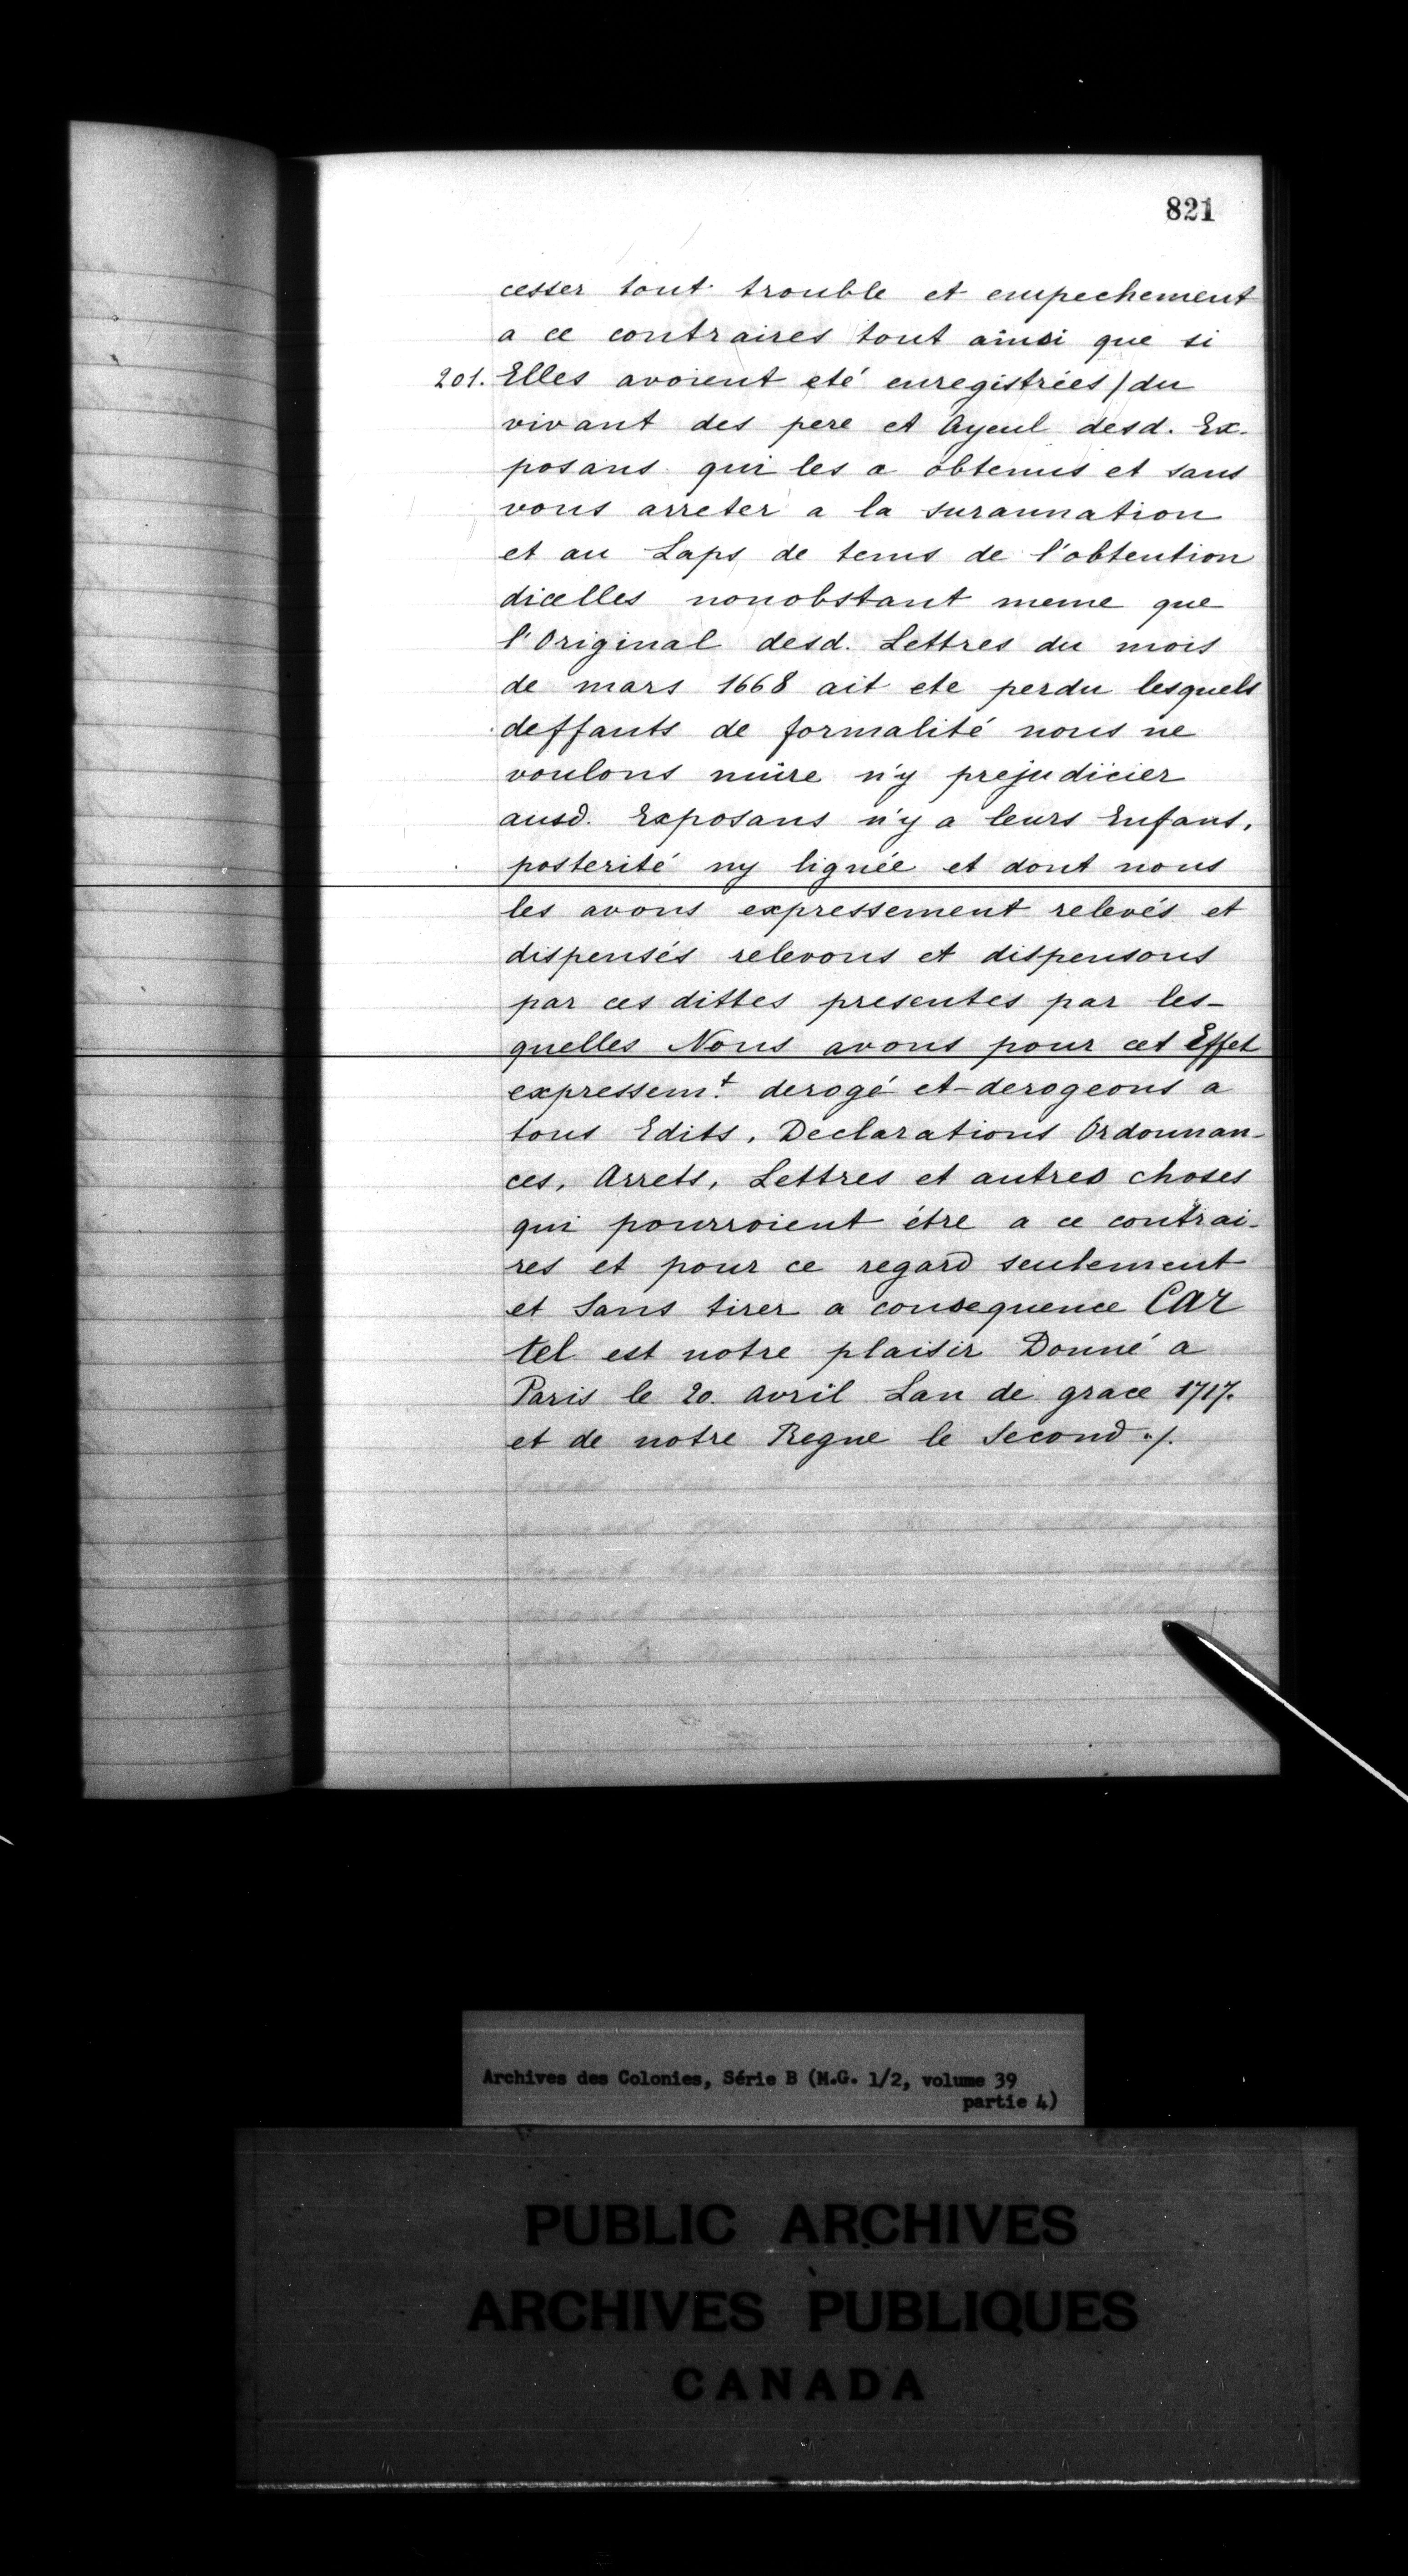 821
cesser tout trouble et empechement
a ce contraires tout ainsi que si
201. Elles avoient eté enregistrées / du
vivant des pere et Ayeul desd. Ex-
posans qui les a obtenus et sans
vous arreter a la surannation
et au Laps de tems de l'obtention
dicelles nonobstant meme que
l'Original desd. Lettres du mois
de mars 1668 ait ete perdu lesquels
deffauts de formalité nous ne
voulons nuire n'y prejudicier
ausd. Exposans n'y a leurs Enfans,
posterité ny lignée et dont nous
les avons expressement relevés et
dispensés relevons et dispensons
par ces dittes presentes par les-
quelles Nous avons pour cet Effet
expressemt. derogé et derogeons a
tous Edits, Declarations Ordonnan-
ces, Arrets, Lettres et autres choses
qui pourroient étre a ce contrai-
res et pour ce regard seulement
et Sans tirer a consequence Car
tel est notre plaisir Donné a
Paris le 20. avril Lan de grace 1717.
et de notre Regne le Second ./.
Archives des Colonies, Série B (M.G. 1/2, volume 39
partie 4)
PUBLIC ARCHIVES
ARCHIVES PUBLIQUES
CANADA